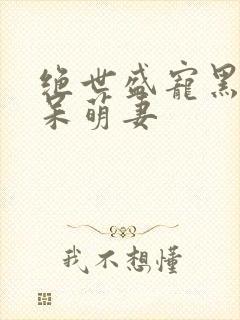 绝世盛宠黑
呆萌妻
我不想懂